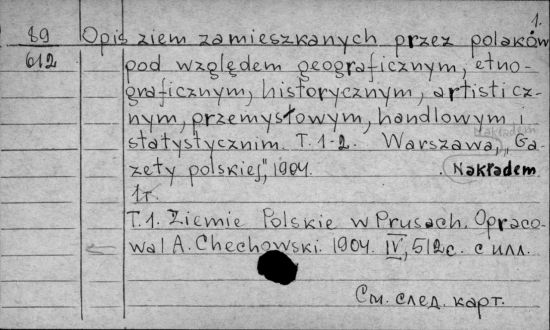 1.
89 Opis ziem zamieszkanych przez polaków
612 pod względem geograficznym, etno-
graficznym, historycznym, artisticz-
nym, przemysłowym, handlowym i
statystycznim. T. 1-2. Warszawa, „Ga-
zety polskiej", 1904. Nakładem
1r.
T.1. Ziemie Polskie w Prusach. Opraco-
wal A. Chechowski. 1904. IV, 512c. с илл.
См. след. карт.